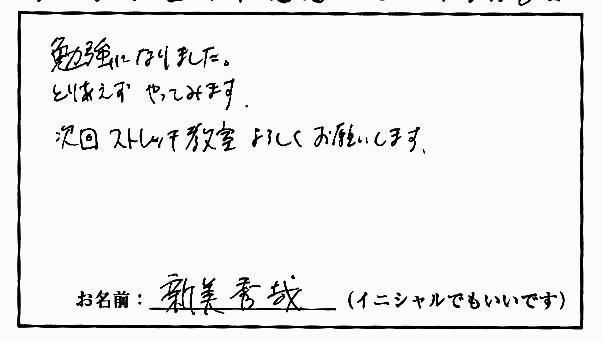 勉強になりました。
とりあえず やってみます.
次回 ストレッチ教室 よろしくお願いします.
お名前： 新美秀哉 （イニシャルでもいいです）